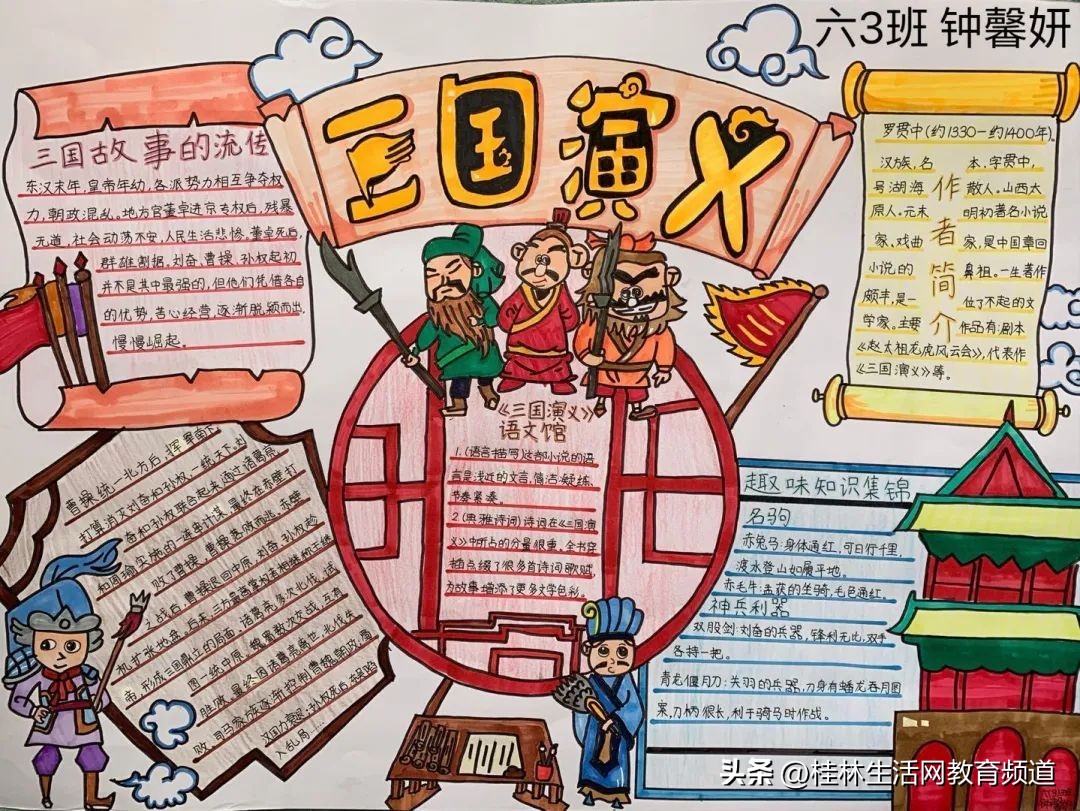 六3班 钟馨妍
三国演义
三国故事的流传
东汉末年,皇帝年幼,各派势力相互争夺权
力,朝政混乱。地方官董卓进京专权后,残暴
无道,社会动荡不安,人民生活悲惨。董卓死后,
群雄割据,刘备、曹操、孙权起初
并不是其中最强的,但他们凭借各自
的优势,苦心经营,逐渐脱颖而出,
慢慢崛起。
作者简介
罗贯中(约1330-约1400年).
汉族,名 本,字贯中,
号湖海 散人。山西太
原人。元末 明初著名小说
家、戏曲 家,是中国章回
小说的 鼻祖。一生著作
颇丰,是一 位了不起的文
学家。主要 作品有:剧本
《赵太祖龙虎风云会》,代表作
《三国演义》等。
《三国演义》
语文馆
1.(语言描写)这部小说的语
言是浅近的文言,简洁、凝练、
节奏紧凑
2.(典雅诗词)诗词在《三国演
义》中所占的分量很重。全书穿
插点缀了很多首诗词歌赋,
为故事增添了更多文学色彩。
曹操统一北方后,挥军南下,
打算消灭刘备和孙权,一统天下。刘
备和孙权联合起来,通过诸葛亮
和周瑜实施的一连串计谋,最终在赤壁打
败了曹操,曹操落荒而逃。赤壁
之战后,曹操退回中原,刘备、孙权趁
机扩张地盘。后来,三方最高掌权者相继称王称
帝,形成三国鼎立的局面,诸葛亮多次北伐,试
图一统中原。魏蜀数次交战,互有
胜败,最终因诸葛亮离世,北伐失
败。司马家族逐渐控制曹魏朝政,蜀
汉国力衰退,孙权死后,东吴陷
入乱局!…
趣味知识集锦
名驹
赤兔马:身体通红,可日行千里,
渡水登山如履平地。
赤毛牛:孟获的坐骑,毛色通红。
神兵利器
双股剑:刘备的兵器,锋利无比,双手
各持一把。
青龙偃月刀:关羽的兵器,刀身有蟠龙吞月图
案,刀柄很长,利于骑马时作战。
头条 @桂林生活网教育频道